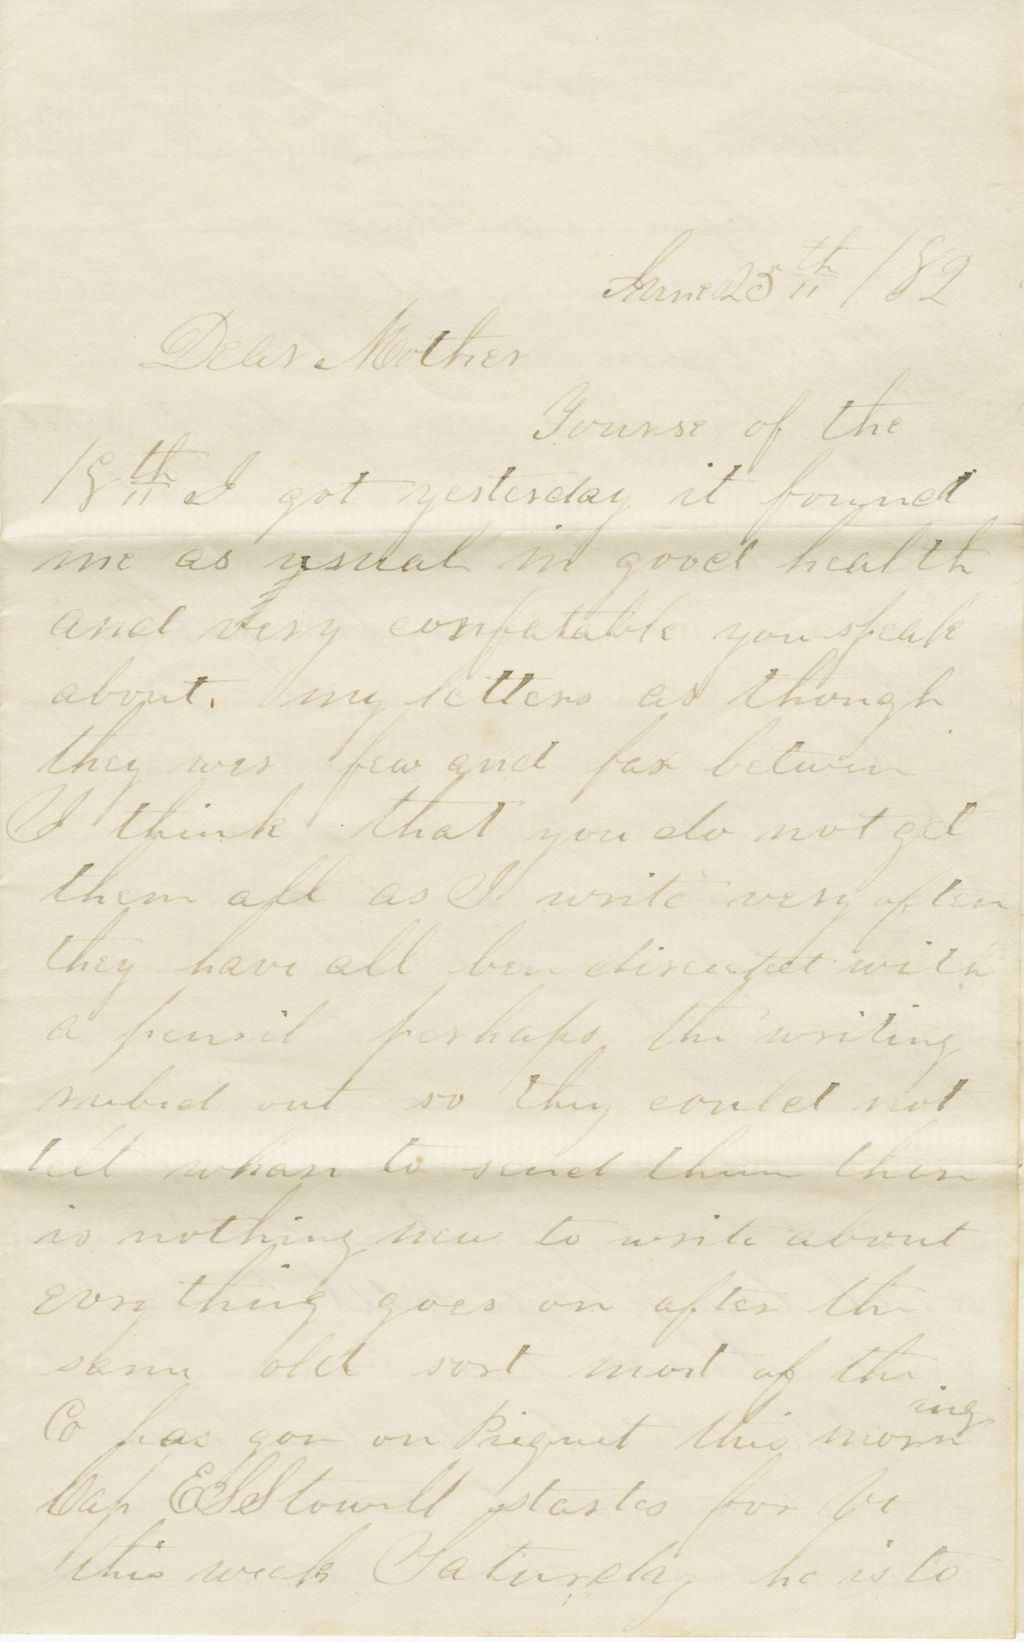 June 25th /82
Dear Mother
Yourse of the
18th I got yesterday it found
me as usual in good health
and very confatable you speak
about. my letters as though
they wer few and far betwen
I think that you do not get
them all as I write very often
they have all ben direcdet with
a pensil perhaps the writing
rubed out so they could not
tell whare to send them thare
is nothing new to write about
evry thing goes on after the
same old sort most of the
Co has gon on Piequet this morning
Cap E S Stowell startes for Vt
this week Saturday he is to